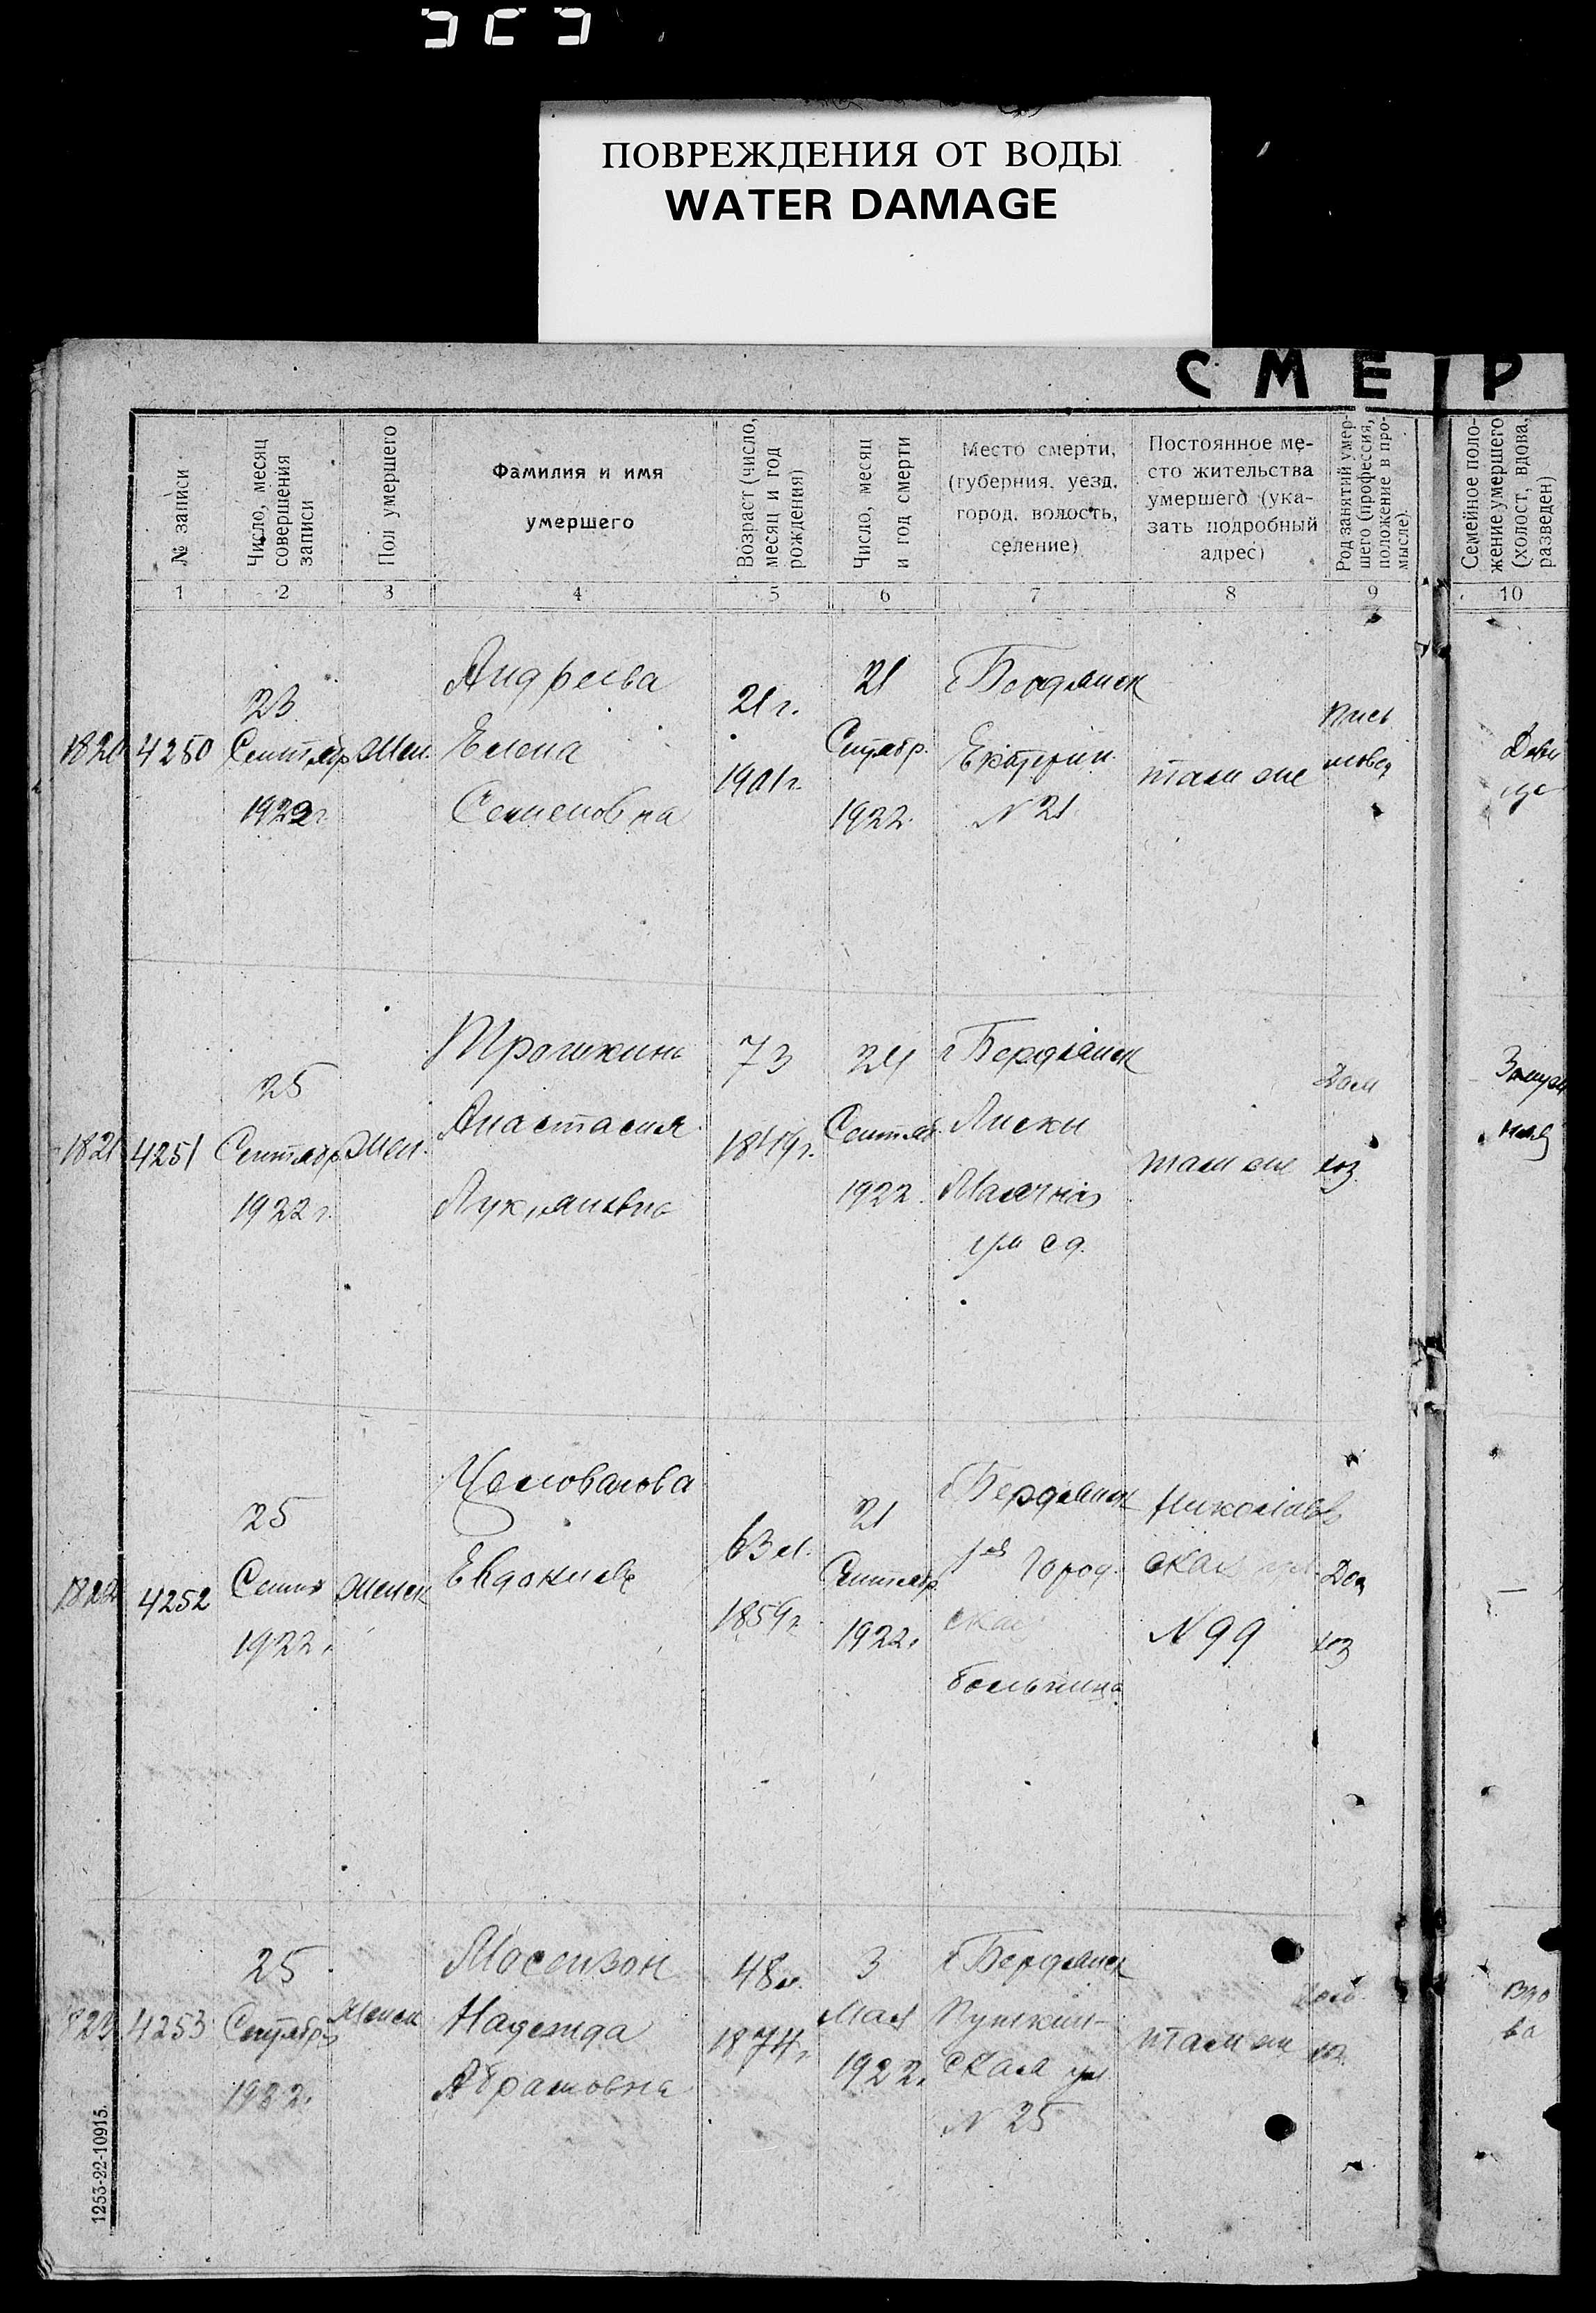 ПОВРЕЖДЕНИЯ ОТ ВОДЫ
WATER DAMAGE
СМЕР
№ записи
Число, месяц
совершения
записи
Пол умершего
Фамилия и имя
умершего
Возраст (число,
месяц и год
рождения)
Число, месяц
и год смерти
Место смерти,
(губерния, уезд,
город, волость,
селение)
Постоянное ме-
сто жительства
умершего (ука-
зать подробный
адрес)
Род занятий умер-
шего (профессия,
положение в про-
мысле).
Семейное поло-
жение умершего
(холост, вдова,
разведен)
1 2 3 4 5 6 7 8 9 10
1820 4250
23
Сентябр
1922 г
Жен.
Андреева
Елена
Семеновна
21 г.
1901 г.
21
Сентябр.
1922.
г Бердянск
Екатерин.
N 21
там же
Деви
ца
1821 4251
25
Сентябр
1922 г.
Жен.
Трошкина
Анастасия
73
24
Сентяб.
1922.
г Бердянск
Лиски
там же
Дом
хоз
1822 4252
25
1922 г.
Женск
Целовалова
63 л.
1859 г.
21
Сентябр
1922 г.
г Бердянск
Город
ская
больница
Николаев
ская ул
N 99
Дом
хоз
823 4253
25
Сентябр
1922.
Женск
Надежда
Абрамовна
48 л.
1874 г.
3
Мая
1922.
г Бердянск
Пушкин-
ская ул
N 25
там же
хоз.
Вдо
ва
1253-22-10915.